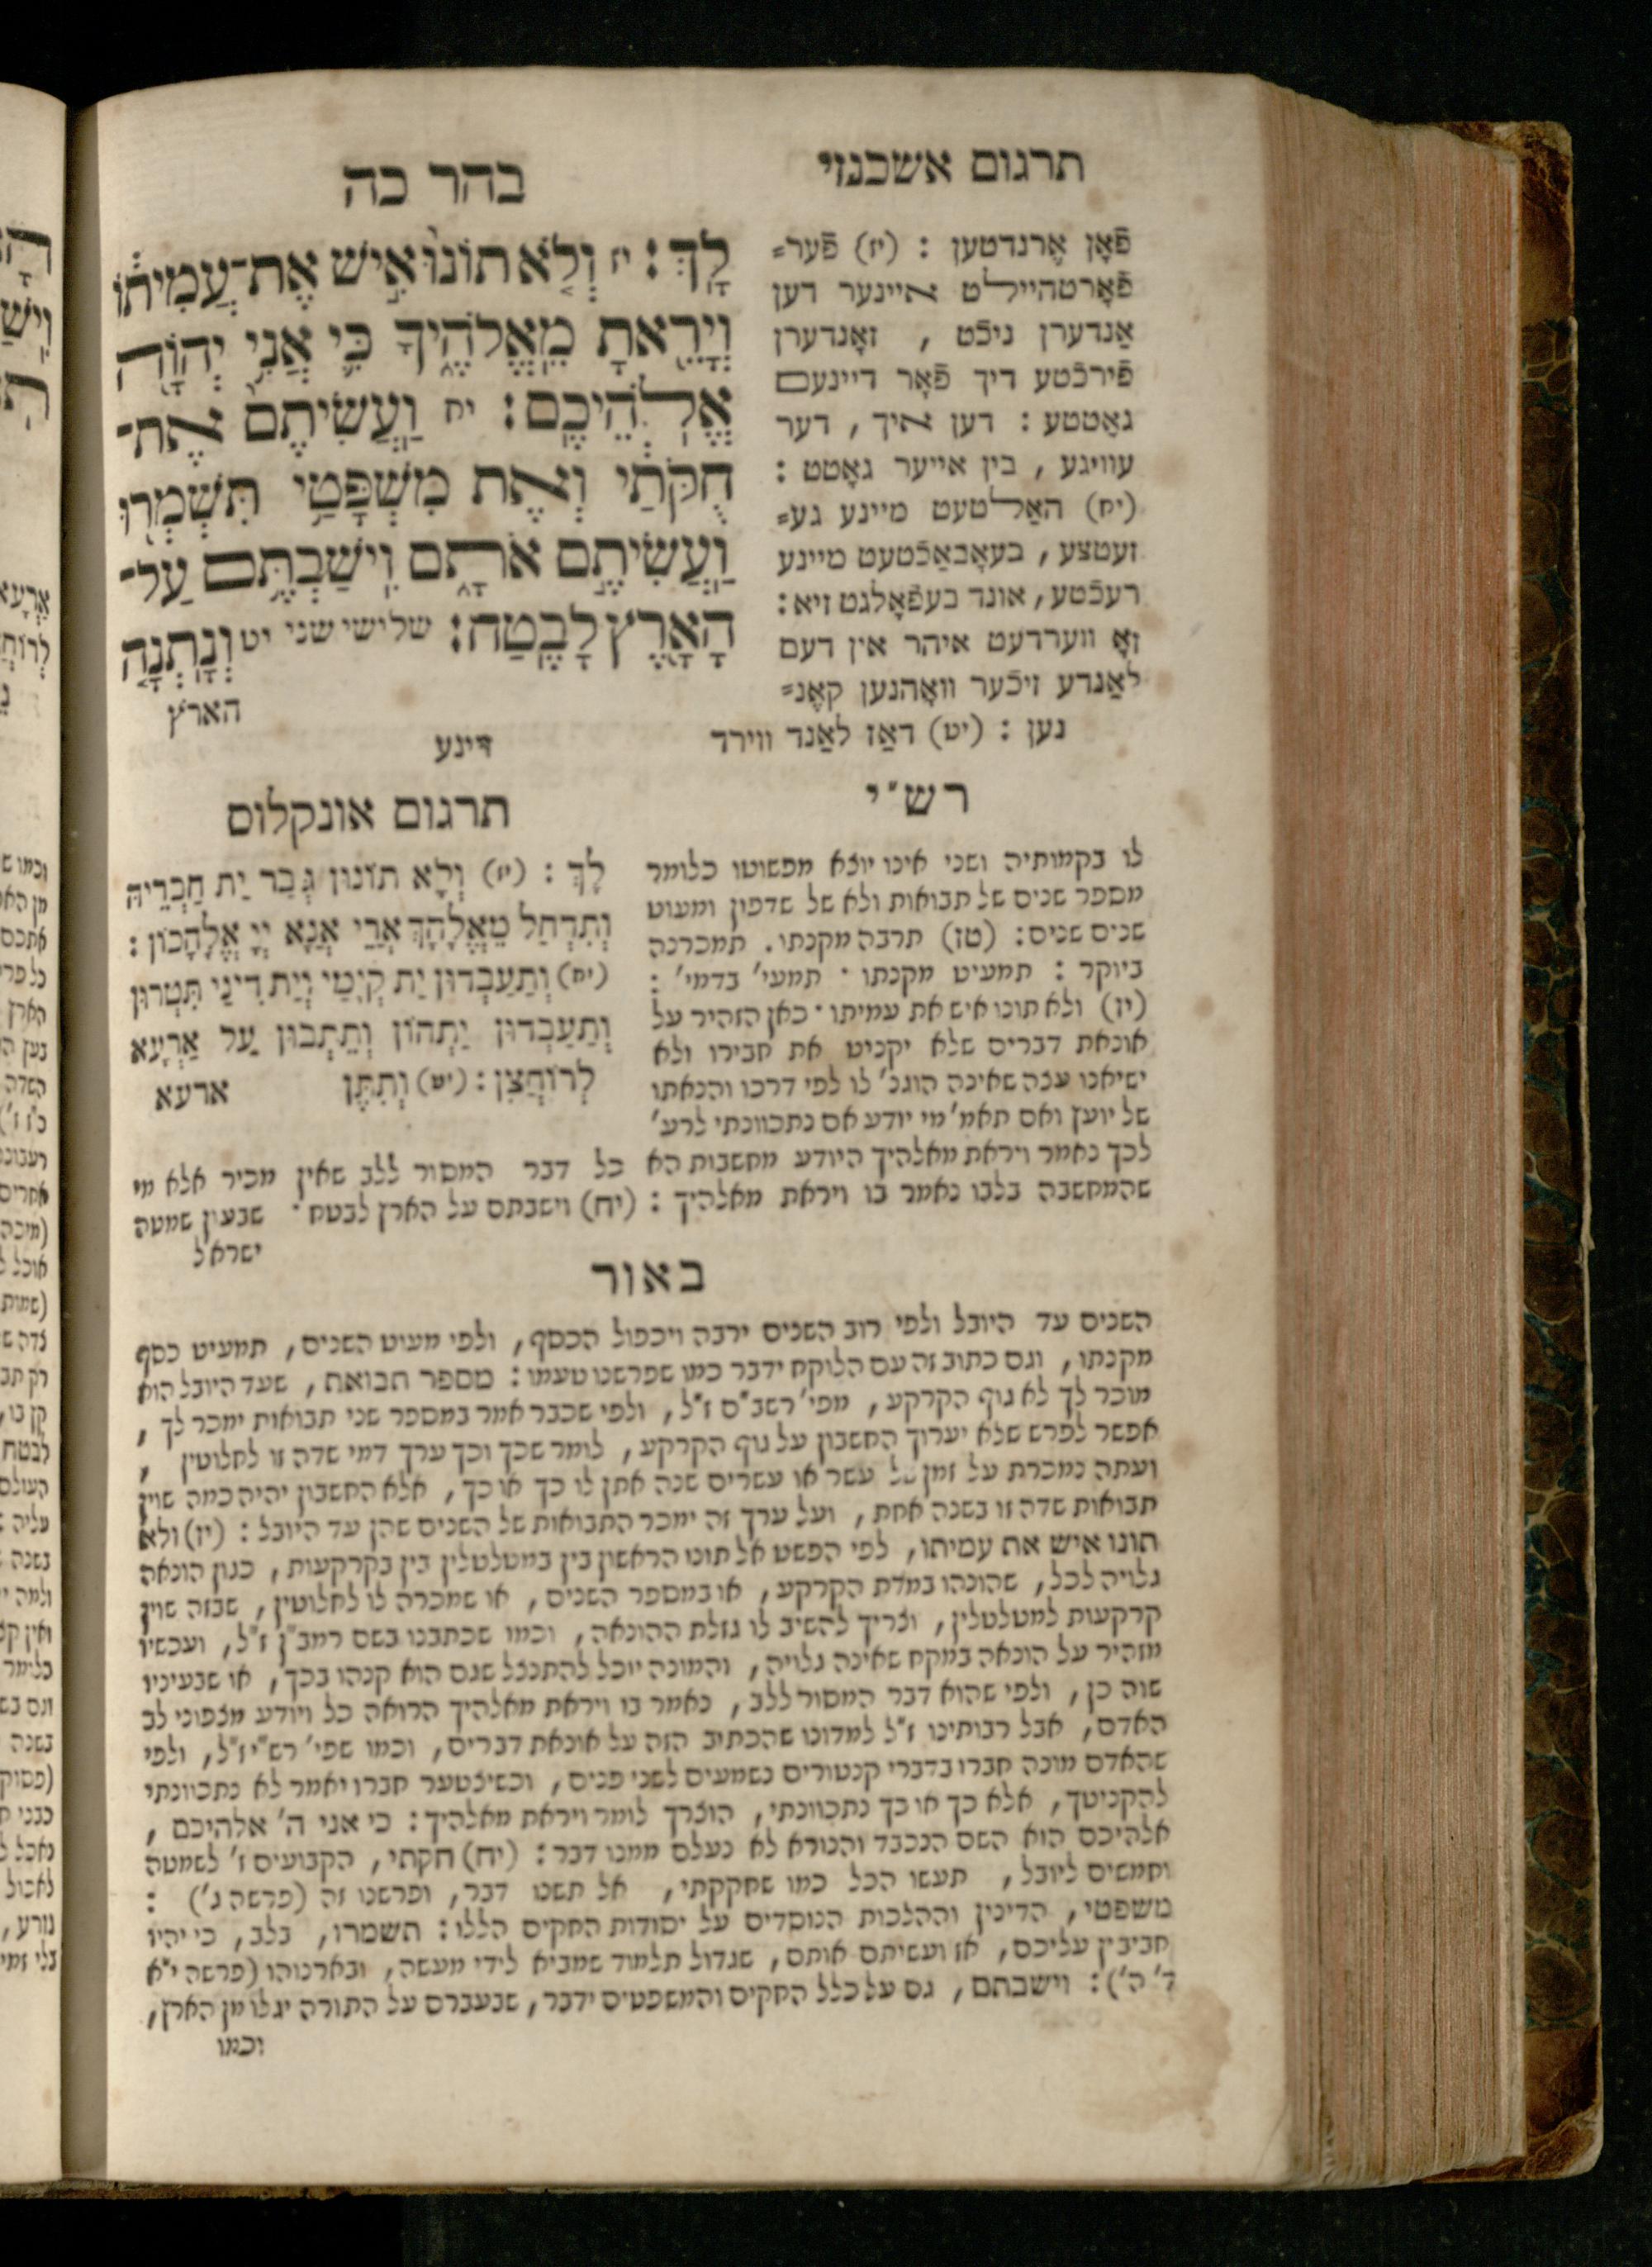 תרגום אשכנזי
בהר כה
פֿאָן אֶרנדטען : (יז) פֿער=
פֿאָרטהיילט איינער דען
אַנדערן ניכֿט , זאָנדערן
פֿירכֿטע דיך פֿאָר דיינעם
גאָטטע : דען איך , דער
עוויגע , בין אייער גאָטט :
(יח) האַלטעט מיינע גע=
זעטצע , בעאָבאַכֿטעט מיינע
רעכֿטע , אונד בעפֿאָלגט זיא :
זאָ ווערדעט איהר אין דעם
לאַנדע זיכֿער וואָהנען קאֶנ=
נען : (יט) דאַז לאַנד ווירד
דינע
לָֽךְ : יז וְלֹ֤א תוֹנוּ֙ אִ֣ישׁ אֶת־עֲמִית֔וֹ
וְיָרֵ֖אתָ מֵֽאֱלֹהֶ֑יךָ כִּ֛י אֲנִ֥י יְהוָ֖ה
אֱלֹֽהֵיכֶֽם : יח וַעֲשִׂיתֶם֙ אֶת־
חֻקֹּתַ֔י וְאֶת מִשְׁפָּטַ֥י תִּשְׁמְר֖וּ
וַעֲשִׂיתֶ֣ם אֹתָ֑ם וִֽישַׁבְתֶּ֥ם עַל־
הָאָ֖רֶץ לָבֶֽטַח : שלישי שני יט וְנָתְנָ֤ה
הארץ
רש״י
לו בקמותיה ושני אינו יוצא מפשוטו כלומר
מספר שנים של תבואות ולא של שדפון ומעוט
שנים שנים : (טז) תרבה מקנתו . תמכרנה
ביוקר : תמעיט מקנתו · תמעי׳ בדמי׳ :
(יז) ולא תונו איש את עמיתו · כאן הזהיר על
אונאת דברים שלא יקניט את חבירו ולא
ישיאנו עצה שאינה הוגנ׳ לו לפי דרכו והנאתו
של יועץ ואם תאמ׳ מי יודע אם נתכוונתי לרע׳
לכך נאמר ויראת מאלהיך היודע מחשבות הא כל דבר המסור ללב שאין מכיר אלא מי
שהמחשבה בלבו נאמר בו ויראת מאלהיך : (יח) וישבתם על הארץ לבטח · שבעון שמטה
ישראל
תרגום אונקלוס
לָךְ : (יז) וְלָא תוֹנוּן גְּבַר יַת חַבְרֵיהּ
וְתִדְחַל מֵאֱלָהָךְ אֲרֵי אֲנָא יְיָ אֱלָהֲכוֹן :
(יח) וְתַעַבְדוּן יַת קְיָמַי וְיַת דִּינַי תִּטְרוּן
וְתַעַבְדוּן יַתְהוֹן וְתֵתְבוּן עַל אַרְעָא
לְרוֹחֲצָן : (יט) וְתִתֵּן
ארעא
באור
השנים עד היובל ולפי רוב השנים ירבה ויכפול הכסף , ולפי מעיט השנים , תמעיט כסף
מקנתו , וגם כתוב זה עם הלוקח ידבר כמו שפרשנו טעמו : מספר תבואת , שעד היובל הוא
מוכר לך לא גוף הקרקע , מפי׳ רשב״ם ז״ל , ולפי שכבר אמר במספר שני תבואות ימכר לך ,
אפשר לפרש שלא יערוך החשבון על גוף הקרקע , לומר שכך וכך ערך דמי שדה זו לחלוטין ,
ועתה נמכרת על זמן של עשר או עשרים שנה אתן לו כך או כך , אלא החשבון יהיה כמה שוין
תבואות שדה זו בשנה אחת , ועל ערך זה ימכר התבואות של השנים שהן עד היובל : (יז) ולא
תונו איש את עמיתו , לפי הפשט אל תונו הראשון בין במטלטלין בין בקרקעות , כגון הונאה
גלויה לכל , שהונהו במדת הקרקע , או במספר השנים , או שמכרה לו לחלוטין , שבזה שוין
קרקעות למטלטלין , וצריך להשיב לו גזלת ההונאה , וכמו שכתבנו בשם רמב״ן ז״ל , ועכשיו
מזהיר על הונאה במקח שאינה גלויה , והמונה יוכל להתנצל שגם הוא קנהו בכך , או שבעיניו
שוה כן , ולפי שהוא דבר המסור ללב , נאמר בו ויראת מאלהיך הרואה כל ויודע מצפוני לב
האדם , אבל רבותינו ז״ל למדונו שהכתיב הזה על אונאת דברים , וכמו שפי׳ רש״י ז״ל , ולפי
שהאדם מונה חברו בדברי קנטורים נשמעים לשני פנים , וכשיצטער חברו יאמר לא נתכוונתי
להקניטך , אלא כך או כך נתכוונתי , הוצרך לומר ויראת מאלהיך : כי אני ה׳ אלהיכם ,
אלהיכם הוא השם הנכבד והנורא לא נעלם ממנו דבר : (יח) חקתי , הקבועים ז׳ לשמטה
וחמשים ליובל , תעשו הכל כמו שחקקתי , אל תשנו דבר , ופרשנו זה (פרשה ג׳) :
משפטי , הדינין וההלכות הנוסדים על יסודות החקים הללו : תשמרו , בלב , כי יהיו
חביבין עליכם , אז ועשיתם אותם , שגדול תלמוד שמביא לידי מעשה , ובארנוהו (פרשה י״א
ד׳ ה׳) : וישבתם , גם על כלל החקים והמשפטים ידבר , שבעברם על התורה יגלו מן הארץ ,
וכמו